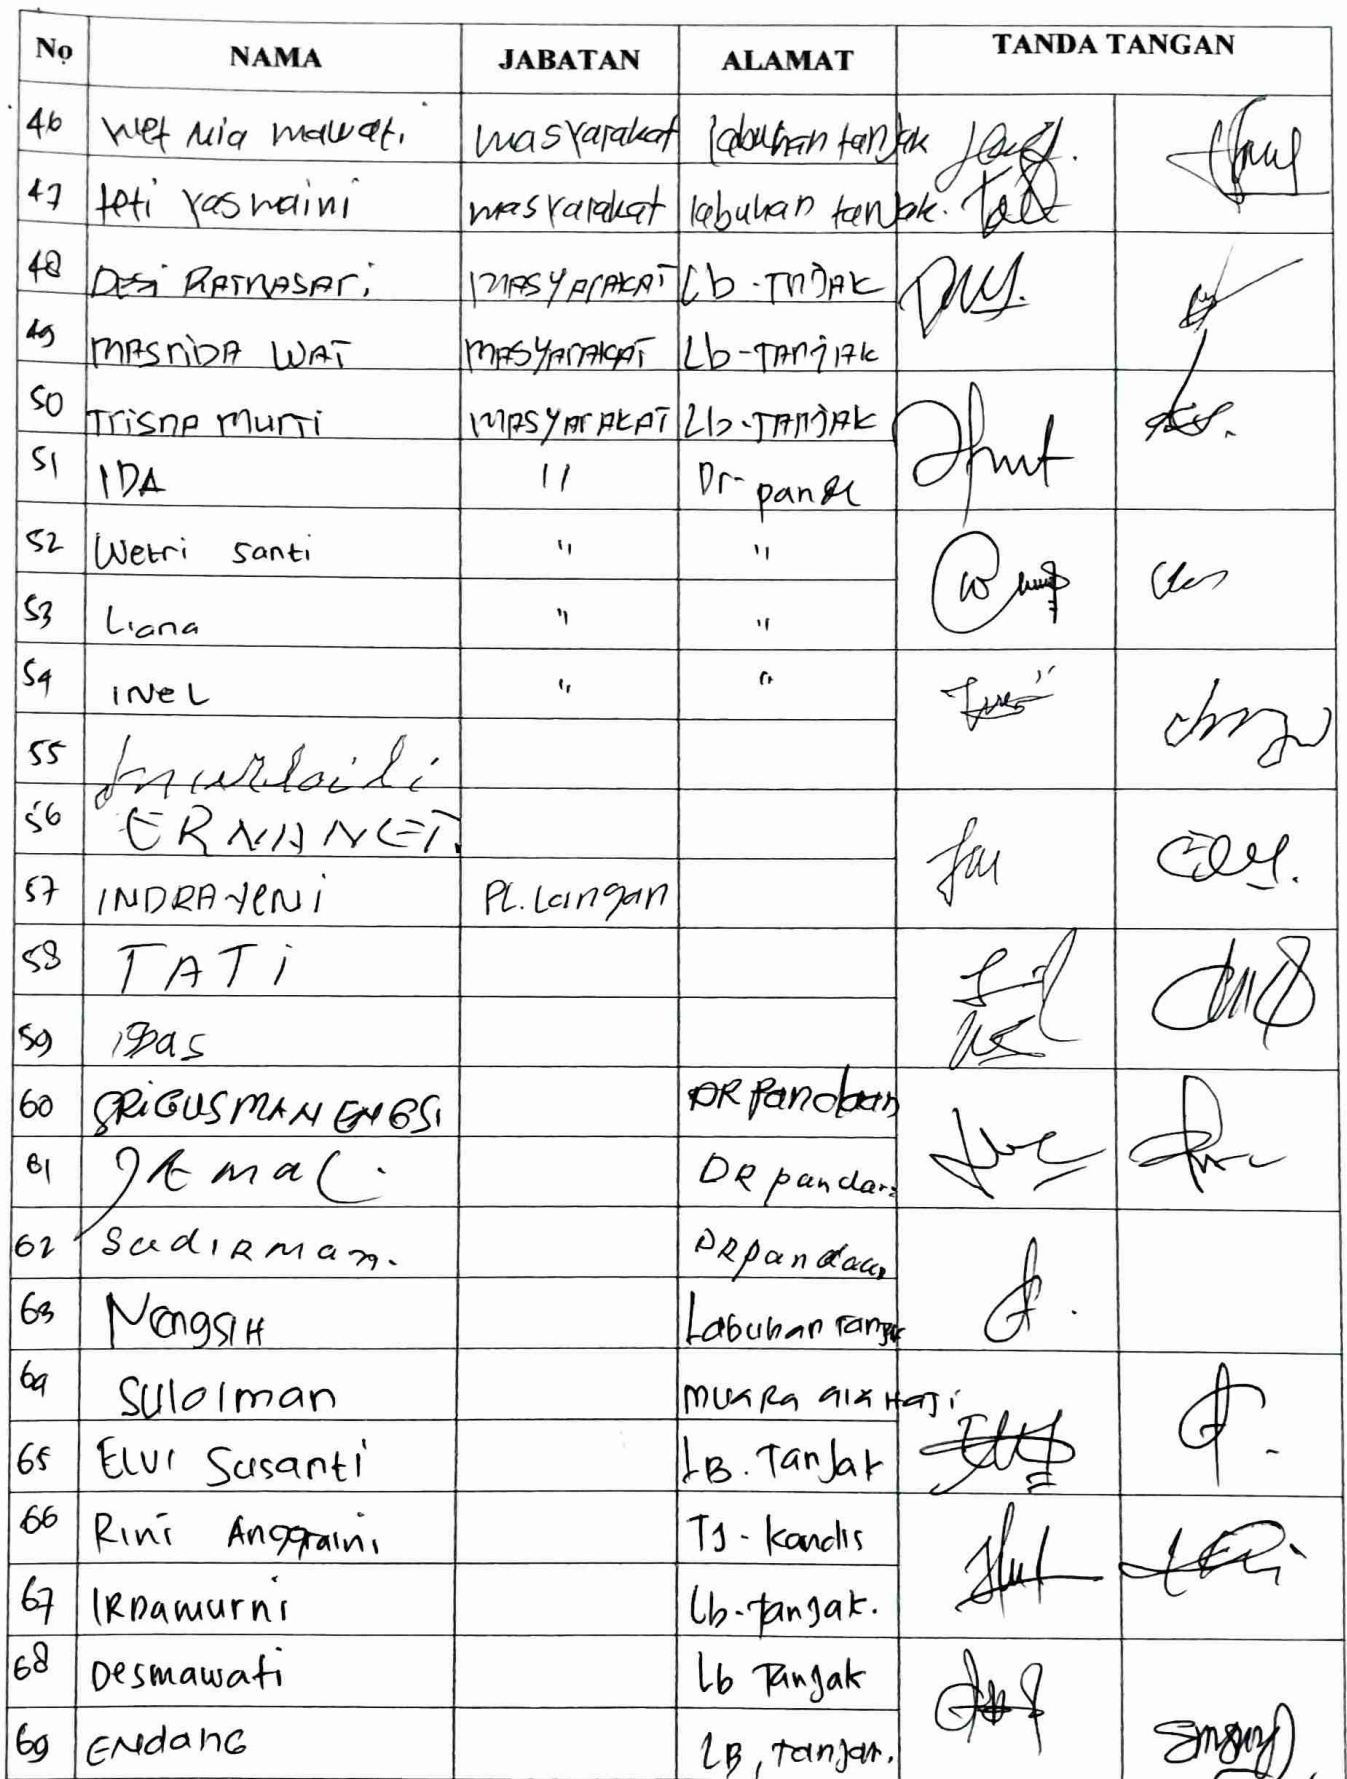 No NAMA JABATAN ALAMAT TANDA TANGAN
46 Wet Mia mawati masyarakat labuhan tanjak
47 teti Yasnaini masyarakat labuhan tanjak.
48 Desi RATNASARi MASYARAKAT Lb-TANJAK
49 MASNIDA WAT MASYARAKAT Lb-TANJAK
50 Trisna Murti MASYARAKAT Lb-TANJAK
51 IDA " Dr-
52 Wetri Santi " "
53 Liana " "
54 INeL " "
55
56 ERNIANET.
57 INDRAYENI PL. Langan
58 TATi
59
60 DR Pandaan
61 DR pandaan
62 Sudirman. DR pandaan
63 Nongsih Labuhan Tanjak
64 Sulaiman MUARA AIR HAJi
65 ELVI Susanti LB. Tanjak
66 Rini Anggraini TJ-kandis
67 IRDamurni Lb-tanjak.
68 Desmawati Lb Tanjak
69 ENdang LB, tanjak.